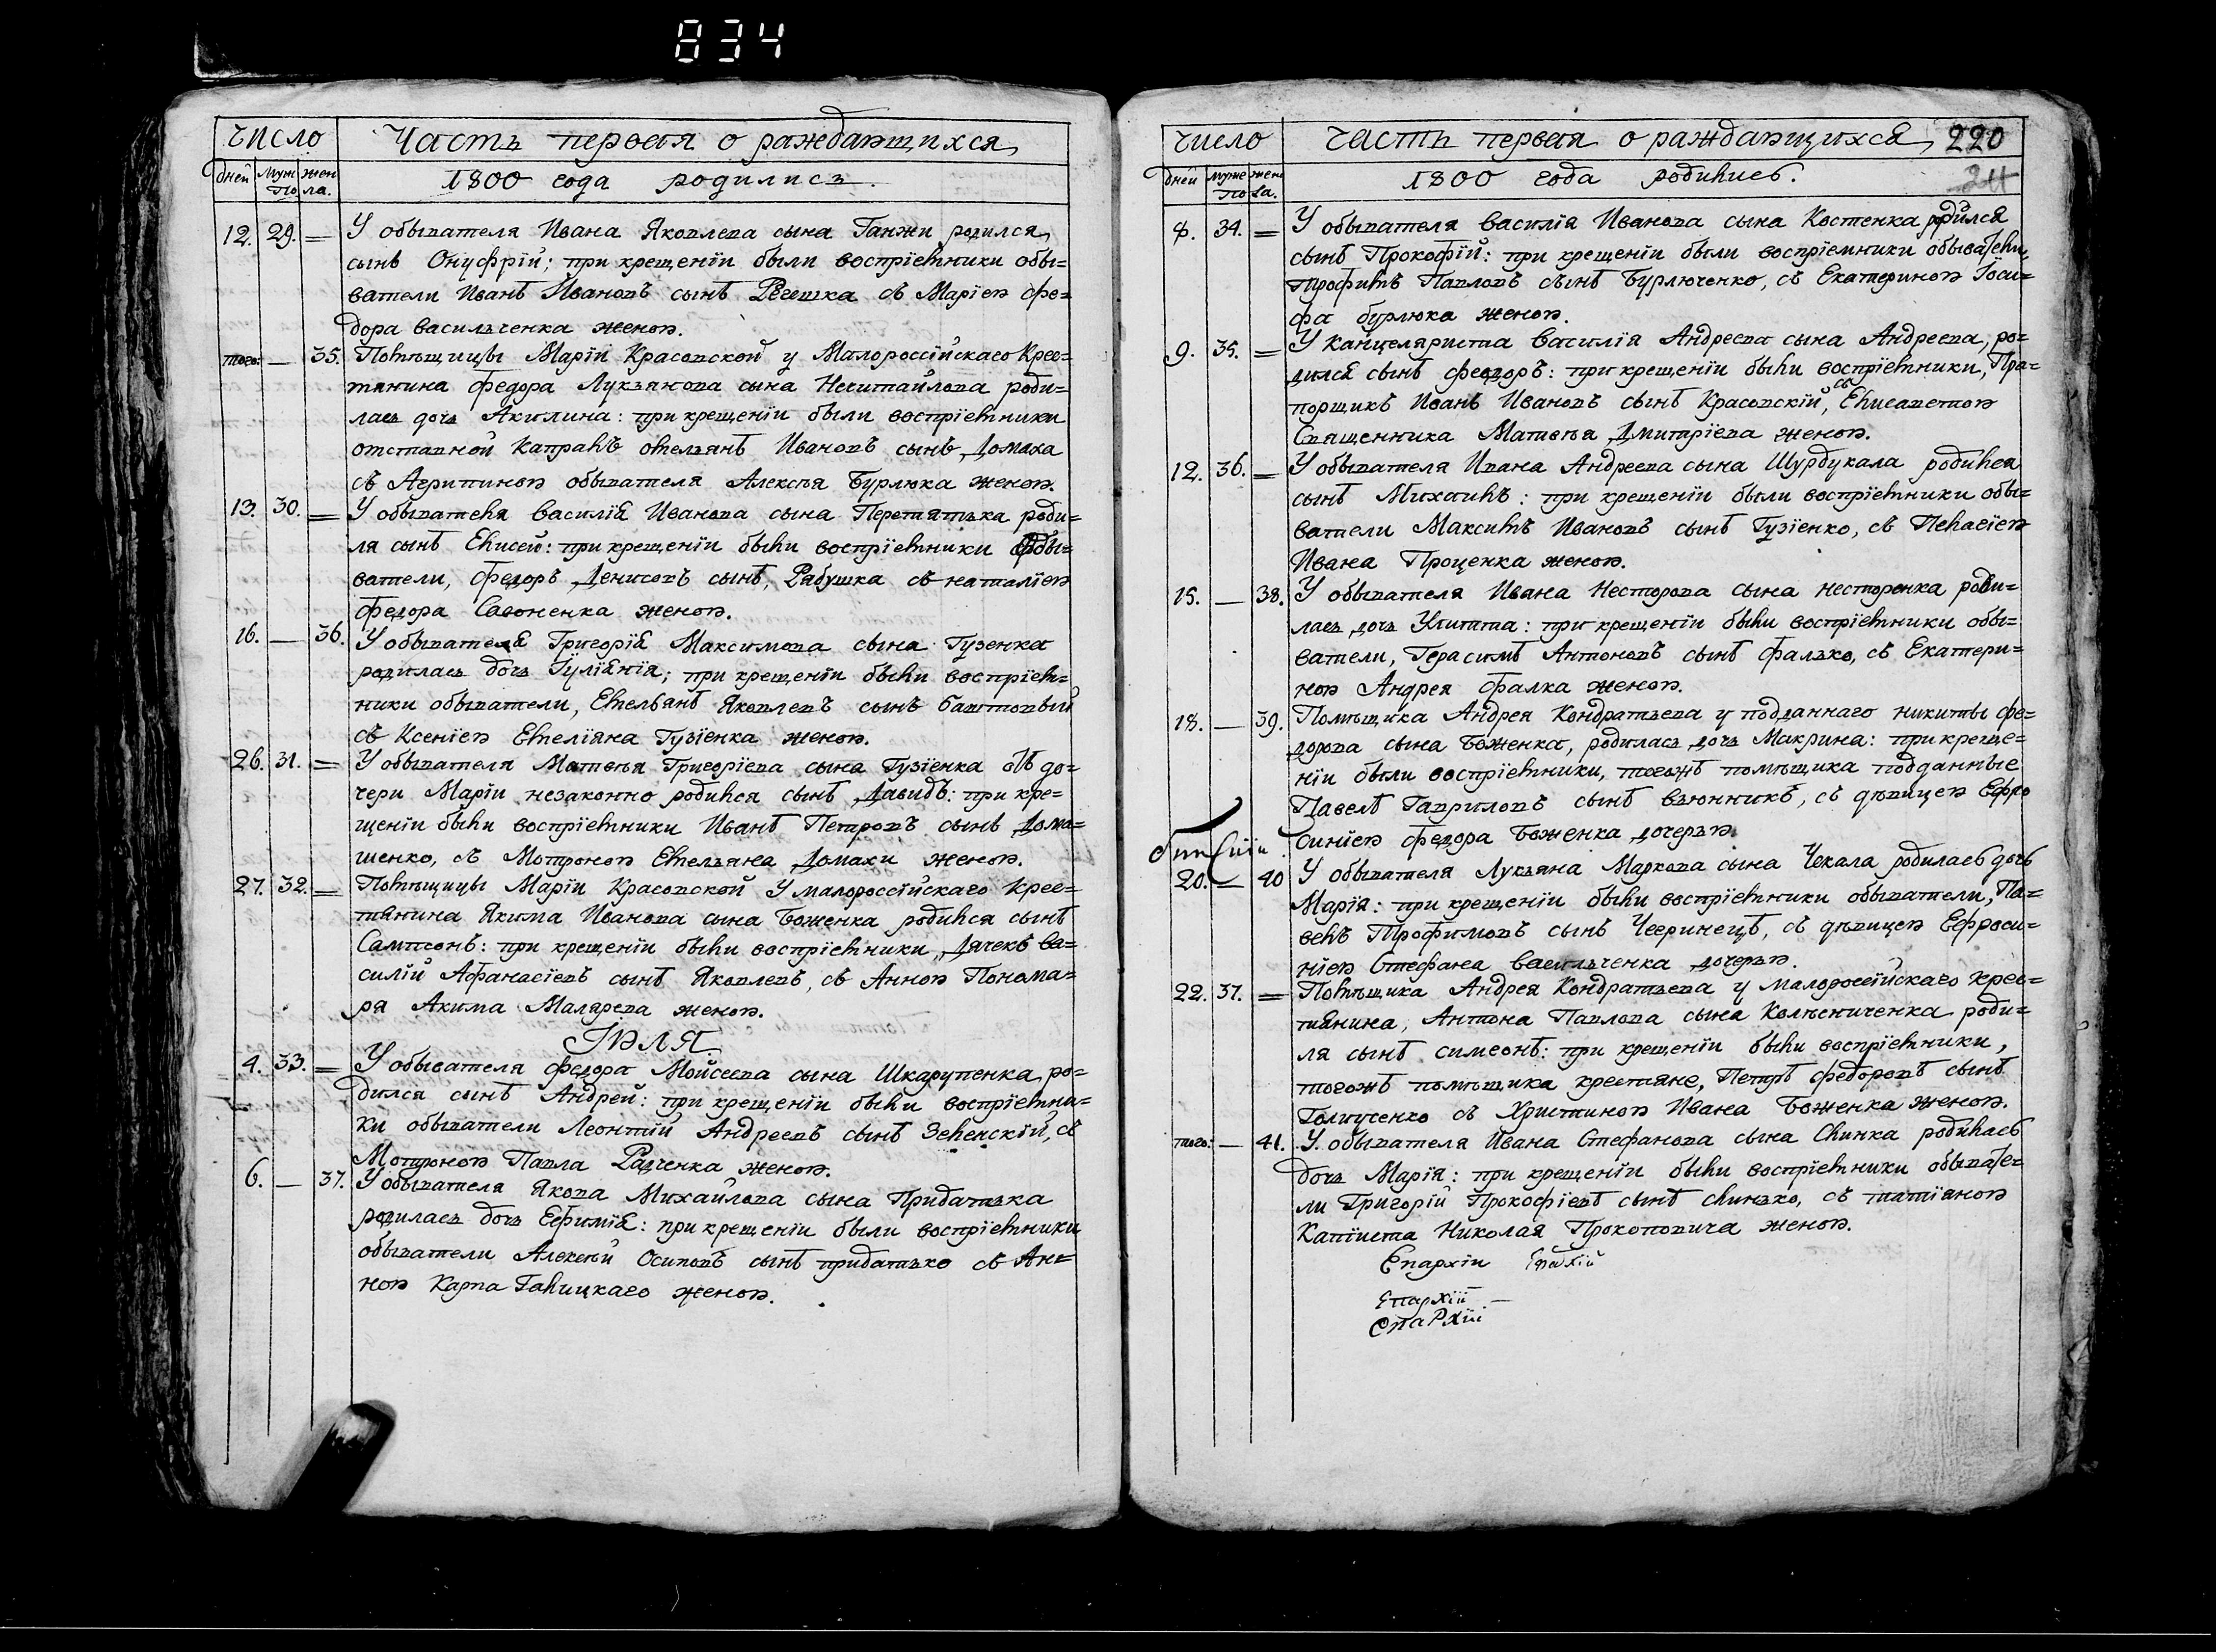 834
число Часть первая о раждающихся
дней муж жен
пола. 1800 года родились.
12. 29. = У обывателя Ивана Яковлева сына Ганжи родился
сынъ Онуфрій; при крещеніи были воспріемники обы=
ватели Иванъ Ивановъ сынъ с Маріею Фе=
дора Васильченка женою.
того: — 35. Помѣщицы Маріи Красовской у Малороссійскаго Крес=
тянина Федора Лукьянова сына Нечитайлова роди=
лась дочь Акилина: при крещеніи были воспріемники
отставной Капралъ Омельянъ Ивановъ сынъ Домаха
съ Агрипиною обывателя Алексѣя Бурлюка женою.
13. 30. = У обывателя Василія Иванова сына Перетятька роди=
ля сынъ Елисей: при крещеніи были воспріемники обы=
ватели, Федоръ Денисовъ сынъ, Рябушка съ наталіею
Федора Савоненка женою.
16. — 36. У обывателя Григорія Максимова сына Гузенка
родилась дочь Іуліанія; при крещеніи были воспріем=
ники обыватели, Емельянъ Яковлевъ сынъ Баштовый
съ Ксеніею Емеліяна Гузіенка женою.
26. 31. = У обывателя Матвѣя Григоріева сына Гузіенка въ до=
чери Маріи незаконно родился сынъ Давидъ: при кре=
щеніи были воспріемники Иванъ Петровъ сынъ Дома=
шенко, съ Мотроною Емельяна Домахи женою.
27. 32. = Помѣщицы Маріи Красовской У малороссійскаго Крес=
тянина Якима Иванова сына Боженка родился сынъ
Сампсонъ: при крещеніи были воспріемники, Дячекъ Ва=
силій Афанасіевъ сынъ Яковлевъ, съ Анною Понома=
ря Акима Малярева женою.
Іюля
4. 33. = У обывателя Федора Мойсеева сына Шкарупенка ро=
дился сынъ Андрей: при крещеніи были воспріемни=
ки обыватели Леонтій Андреевъ сынъ Зеленскій, съ
Мотроною Павла Радченка женою.
6. — 37. У обывателя Якова Михайлова сына Придатька
родилась дочь Ефимія: при крещеніи были воспріемники
обыватели Алексѣй Осиповъ сынъ придатько съ Ан=
ною Карпа Галицкаго женою.
число Часть первая о раждающихся 220
24
дней муже жен
пола. 1800 года родились.
8. 34. = У обывателя Василія Иванова сына Костенка родился
сынъ Прокофій: при крещеніи были воспріемники обыватели
трофимъ Павловъ сынъ Бурлюченко, съ Екатериною Іоси=
фа бурлюка женою.
9. 35. = У канцеляриста Василія Андреева сына Андреева, ро=
дился сынъ феодоръ: при крещеніи были воспріемники, Пра=
порщикъ Иванъ Ивановъ сынъ Красовскій, съ Елисаветою
Священника Матвѣя Дмитріева женою.
12. 36. = У обывателя Ивана Андреева сына Шурдукала родился
сынъ Михаилъ: при крещеніи были воспріемники обы=
ватели Максимъ Ивановъ сынъ Гузіенко, съ Пелагіею
Ивана Проценка женою.
15. — 38. У обывателя Ивана Несторова сына Несторенка роди=
лась дочь Улитта: при крещеніи были воспріемники обы=
ватели, Герасимъ Антоновъ сынъ Фалько, съ Екатери=
ною Андрея Фалка женою.
18. — 39. Помѣщика Андрея Кондратьева у подданнаго никиты Фе=
дорова сына Боженка, родилась дочь Макрина: при креще=
ніи были воспріемники, тогожъ помѣщика подданные
Павелъ Гавриловъ сынъ Вьюнникъ, съ дѣвицею Ефро
синіею Федора Боженка дочерью.
20. — 40 У обывателя Лукьяна Маркова сына Чекала родилась дочь
Марія: при крещеніи были воспріемники обыватели, Па=
велъ Трофимовъ сынъ Чегринецъ, съ дѣвицею Ефроси=
ніею Стефана Васильченка дочерью.
22. 37. = Помѣщика Андрея Кондратьева у малороссійскаго крес=
тянина, Антона Павлова сына Колѣсниченка роди=
ля сынъ симеонъ: при крещеніи были воспріемники,
тогожъ помѣщика крестяне, Петръ Федоровъ сынъ
Голиученко съ Христиною Ивана Боженка женою.
того: — 41. У обывателя Ивана Стефанова сына Слинка родилась
дочь Марія: при крещеніи были воспріемники обывате=
ли Григорій Прокофіевъ сынъ слинько, съ татіаною
Капіиста Николая Прокоповича женою.
Епархіи Епархій
Епархіи
Епархіи